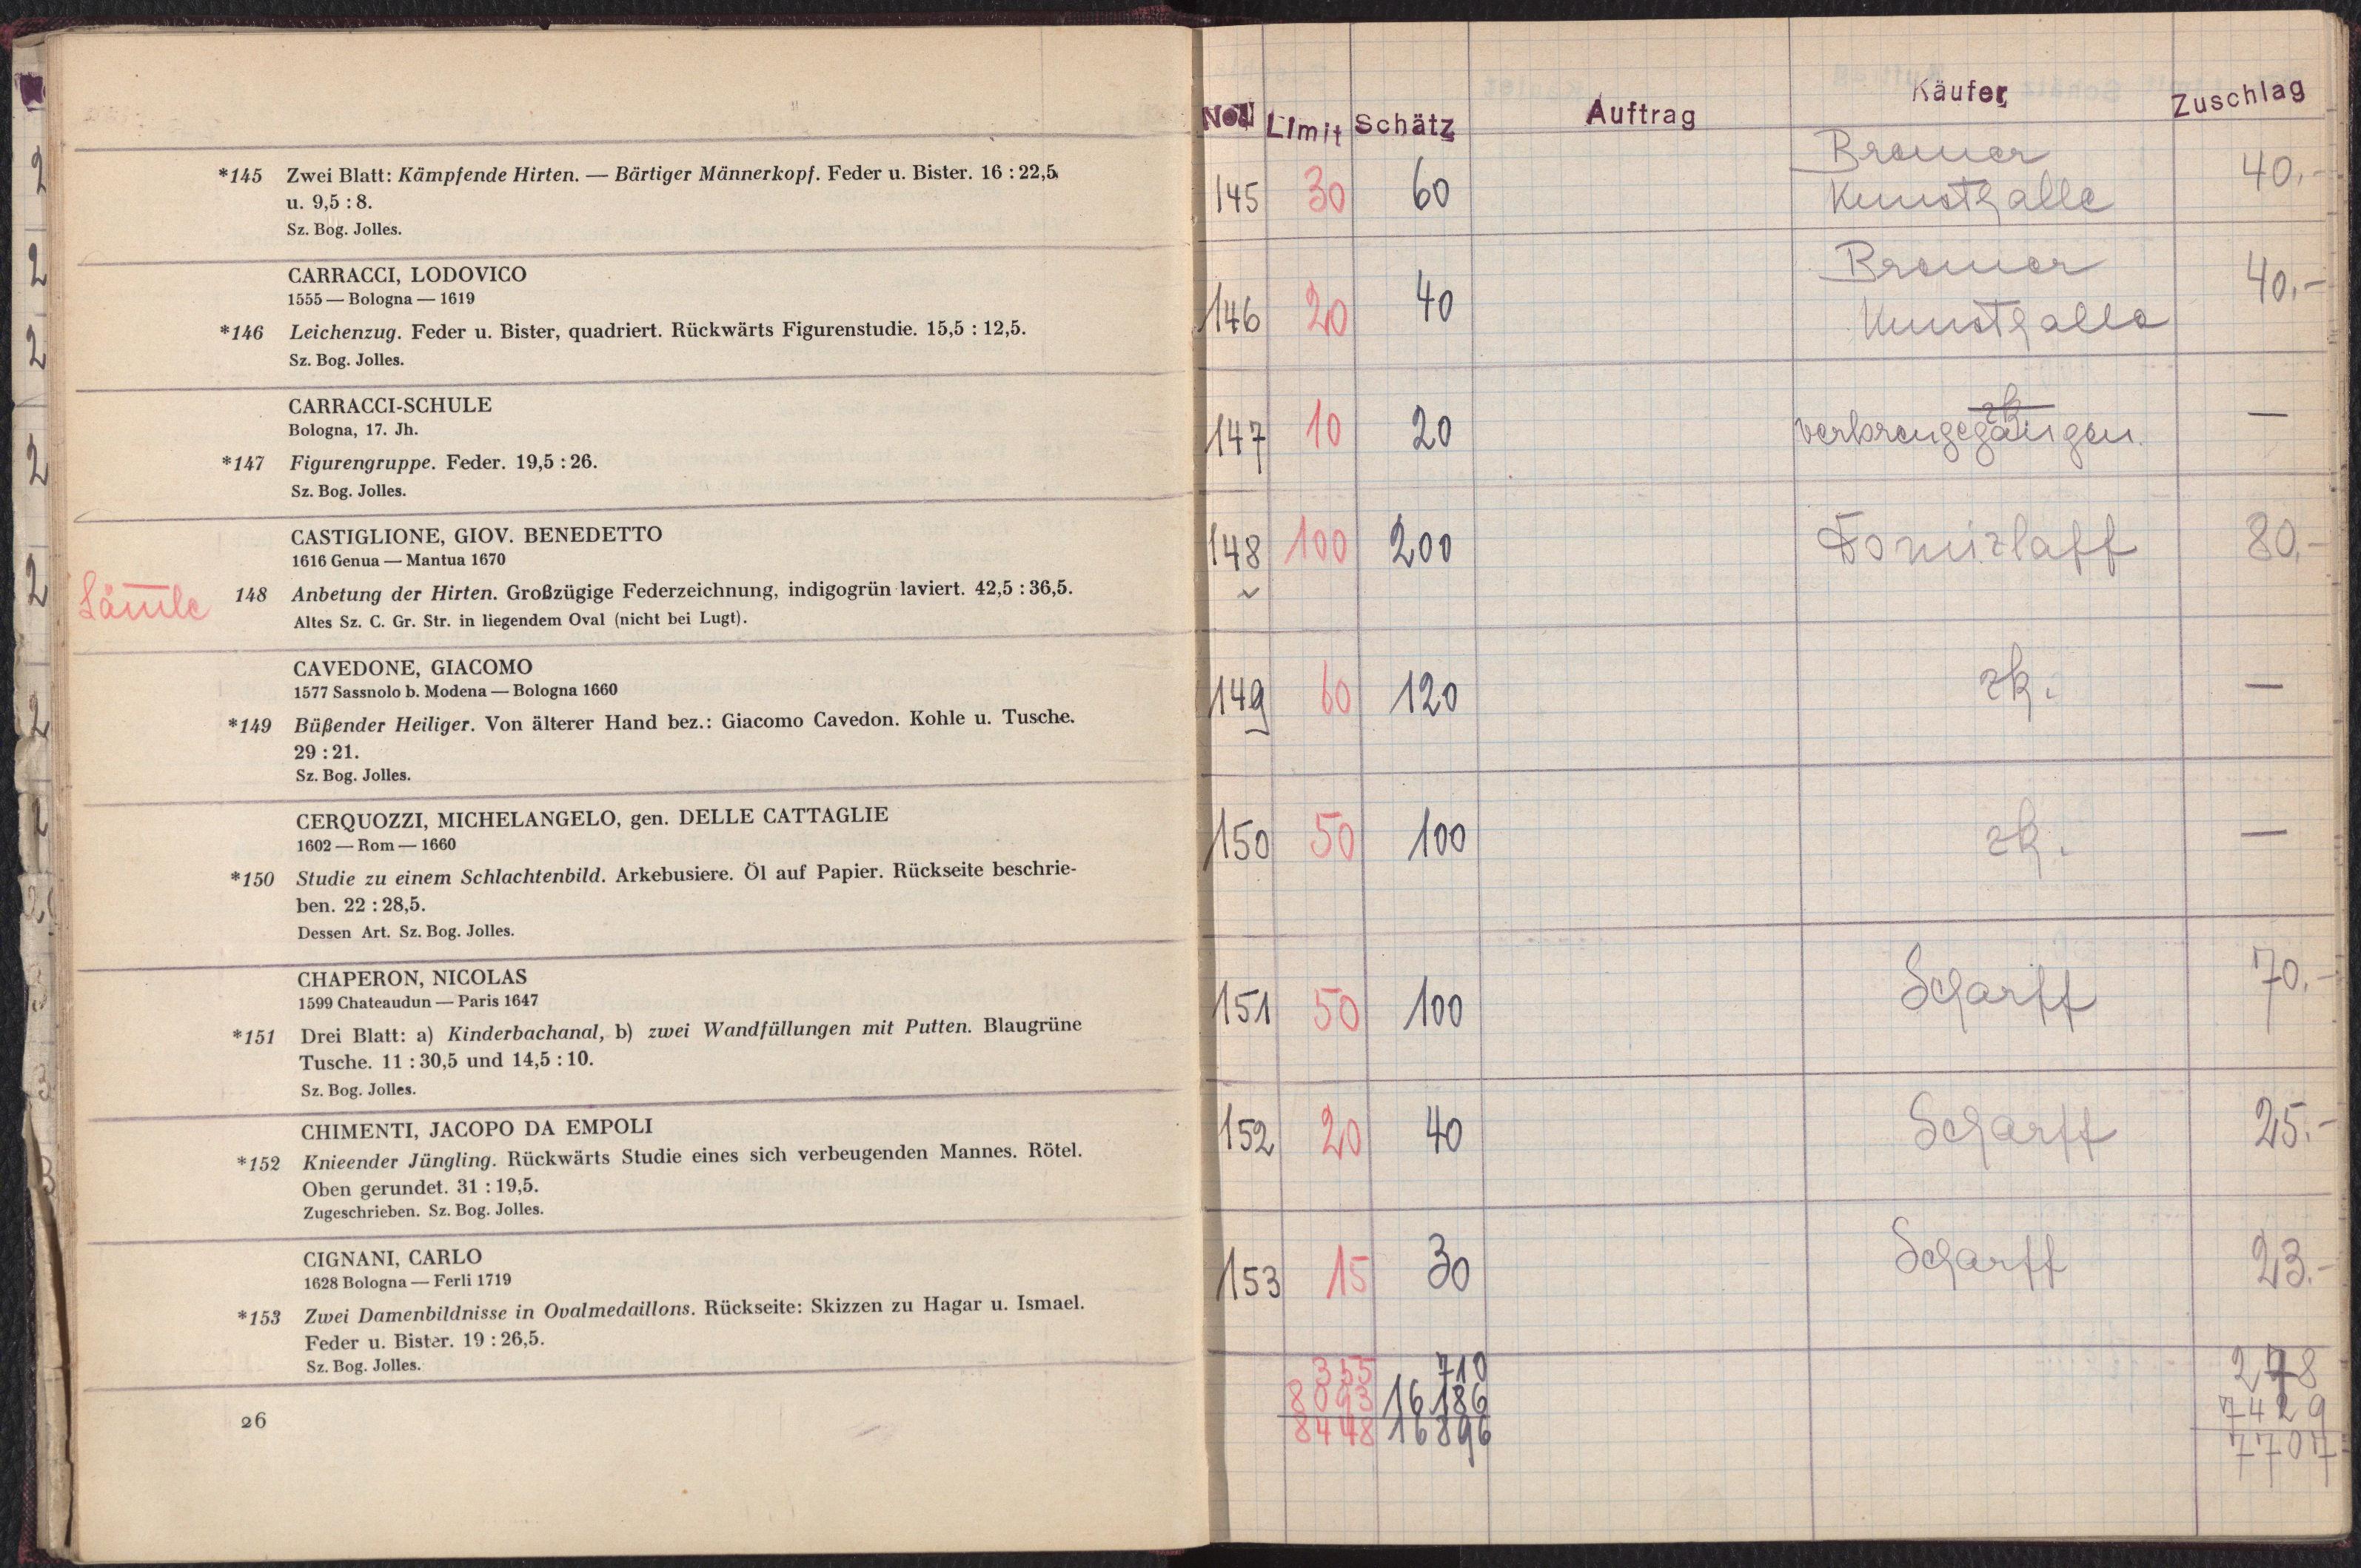 *145 Zwei Blatt: Kämpfende Hirten. — Bärtiger Männerkopf. Feder u. Bister. 16 : 22,5
u. 9,5 : 8.
Sz. Bog. Jolles.
CARRACCI, LODOVICO
1555 — Bologna — 1619
*146 Leichenzug. Feder u. Bister, quadriert. Rückwärts Figurenstudie. 15,5 : 12,5.
Sz. Bog. Jolles.
CARRACCI-SCHULE
Bologna, 17. Jh.
*147 Figurengruppe. Feder. 19,5 : 26.
Sz. Bog. Jolles.
CASTIGLIONE, GIOV. BENEDETTO
1616 Genua — Mantua 1670
148 Anbetung der Hirten. Großzügige Federzeichnung, indigogrün laviert. 42,5 : 36,5.
Altes Sz. C. Gr. Str. in liegendem Oval (nicht bei Lugt).
CAVEDONE, GIACOMO
1577 Sassnolo b. Modena — Bologna 1660
*149 Büßender Heiliger. Von älterer Hand bez.: Giacomo Cavedon. Kohle u. Tusche.
29 : 21.
Sz. Bog. Jolles.
CERQUOZZI, MICHELANGELO, gen. DELLE CATTAGLIE
1602 — Rom — 1660
*150 Studie zu einem Schlachtenbild. Arkebusiere. Öl auf Papier. Rückseite beschrie-
ben. 22 : 28,5.
Dessen Art. Sz. Bog. Jolles.
CHAPERON, NICOLAS
1599 Chateaudun — Paris 1647
*151 Drei Blatt: a) Kinderbachanal, b) zwei Wandfüllungen mit Putten. Blaugrüne
Tusche. 11 : 30,5 und 14,5 : 10.
Sz. Bog. Jolles.
CHIMENTI, JACOPO DA EMPOLI
*152 Knieender Jüngling. Rückwärts Studie eines sich verbeugenden Mannes. Rötel.
Oben gerundet. 31 : 19,5.
Zugeschrieben. Sz. Bog. Jolles.
CIGNANI, CARLO
1628 Bologna — Ferli 1719
*153 Zwei Damenbildnisse in Ovalmedaillons. Rückseite: Skizzen zu Hagar u. Ismael.
Feder u. Bister. 19 : 26,5.
Sz. Bog. Jolles.
26
Limit Schätz Auftrag Käufer Zuschlag
145 30 60 Bremer Kunsthalle 40,-
146 20 40 Bremer Kunsthalle 40.-
147 10 20 zk —
148 100 200 80,-
149 60 120 zk. —
150 50 100 zk. —
151 50 100 Scharff 70.-
152 20 40 Scharff 25.-
153 15 30 Scharff 23.-
355 710 278
8093 16186 7429
8448 16896 7707